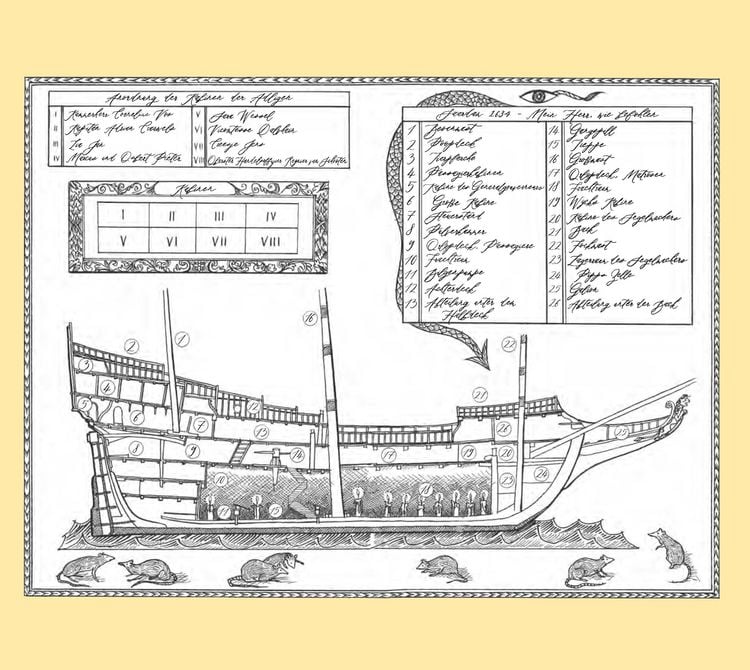 Anordnung der Kabinen der Adligen
I Kammerherr Cornelius Vos
II Kapitän Adrian Crauwels
III Lia Jan
IV Marcus und Osbert Pieter
V Sara Wessel
VI Vicomtesse Dalvhain
VII Creesje Jens
VIII Reynier van Schooten
Kabinen
I II III IV
V VI VII VIII
Saardam 1634 - Mein Herr, wie befohlen
1 Besanmast
2 Poopdeck
3 Tierpferche
4 Passagierkabinen
5 Kabine des Generalgouverneurs
6 Große Kabine
7 Steuerstand
8 Pulverkammer
9 Orlopdeck, Passagiere
10 Frachtraum
11 Bilgenpumpe
12 Achterdeck
13 Abteilung unter dem
Halbdeck
14 Gangspill
15 Treppe
16 Großmast
17 Orlopdeck, Matrosen
18 Frachtraum
19 Wycks Kabine
20 Kabine des Segelmachers
21 Back
22 Fockmast
23 Lagerraum des Segelmachers
24 Pipps Zelle
25 Galion
26 Abteilung unter der Back
16
22
1
2
3
4
21
5
6
7
12
13
26
25
8
9
14
17
19
20
10
18
23
24
11
15